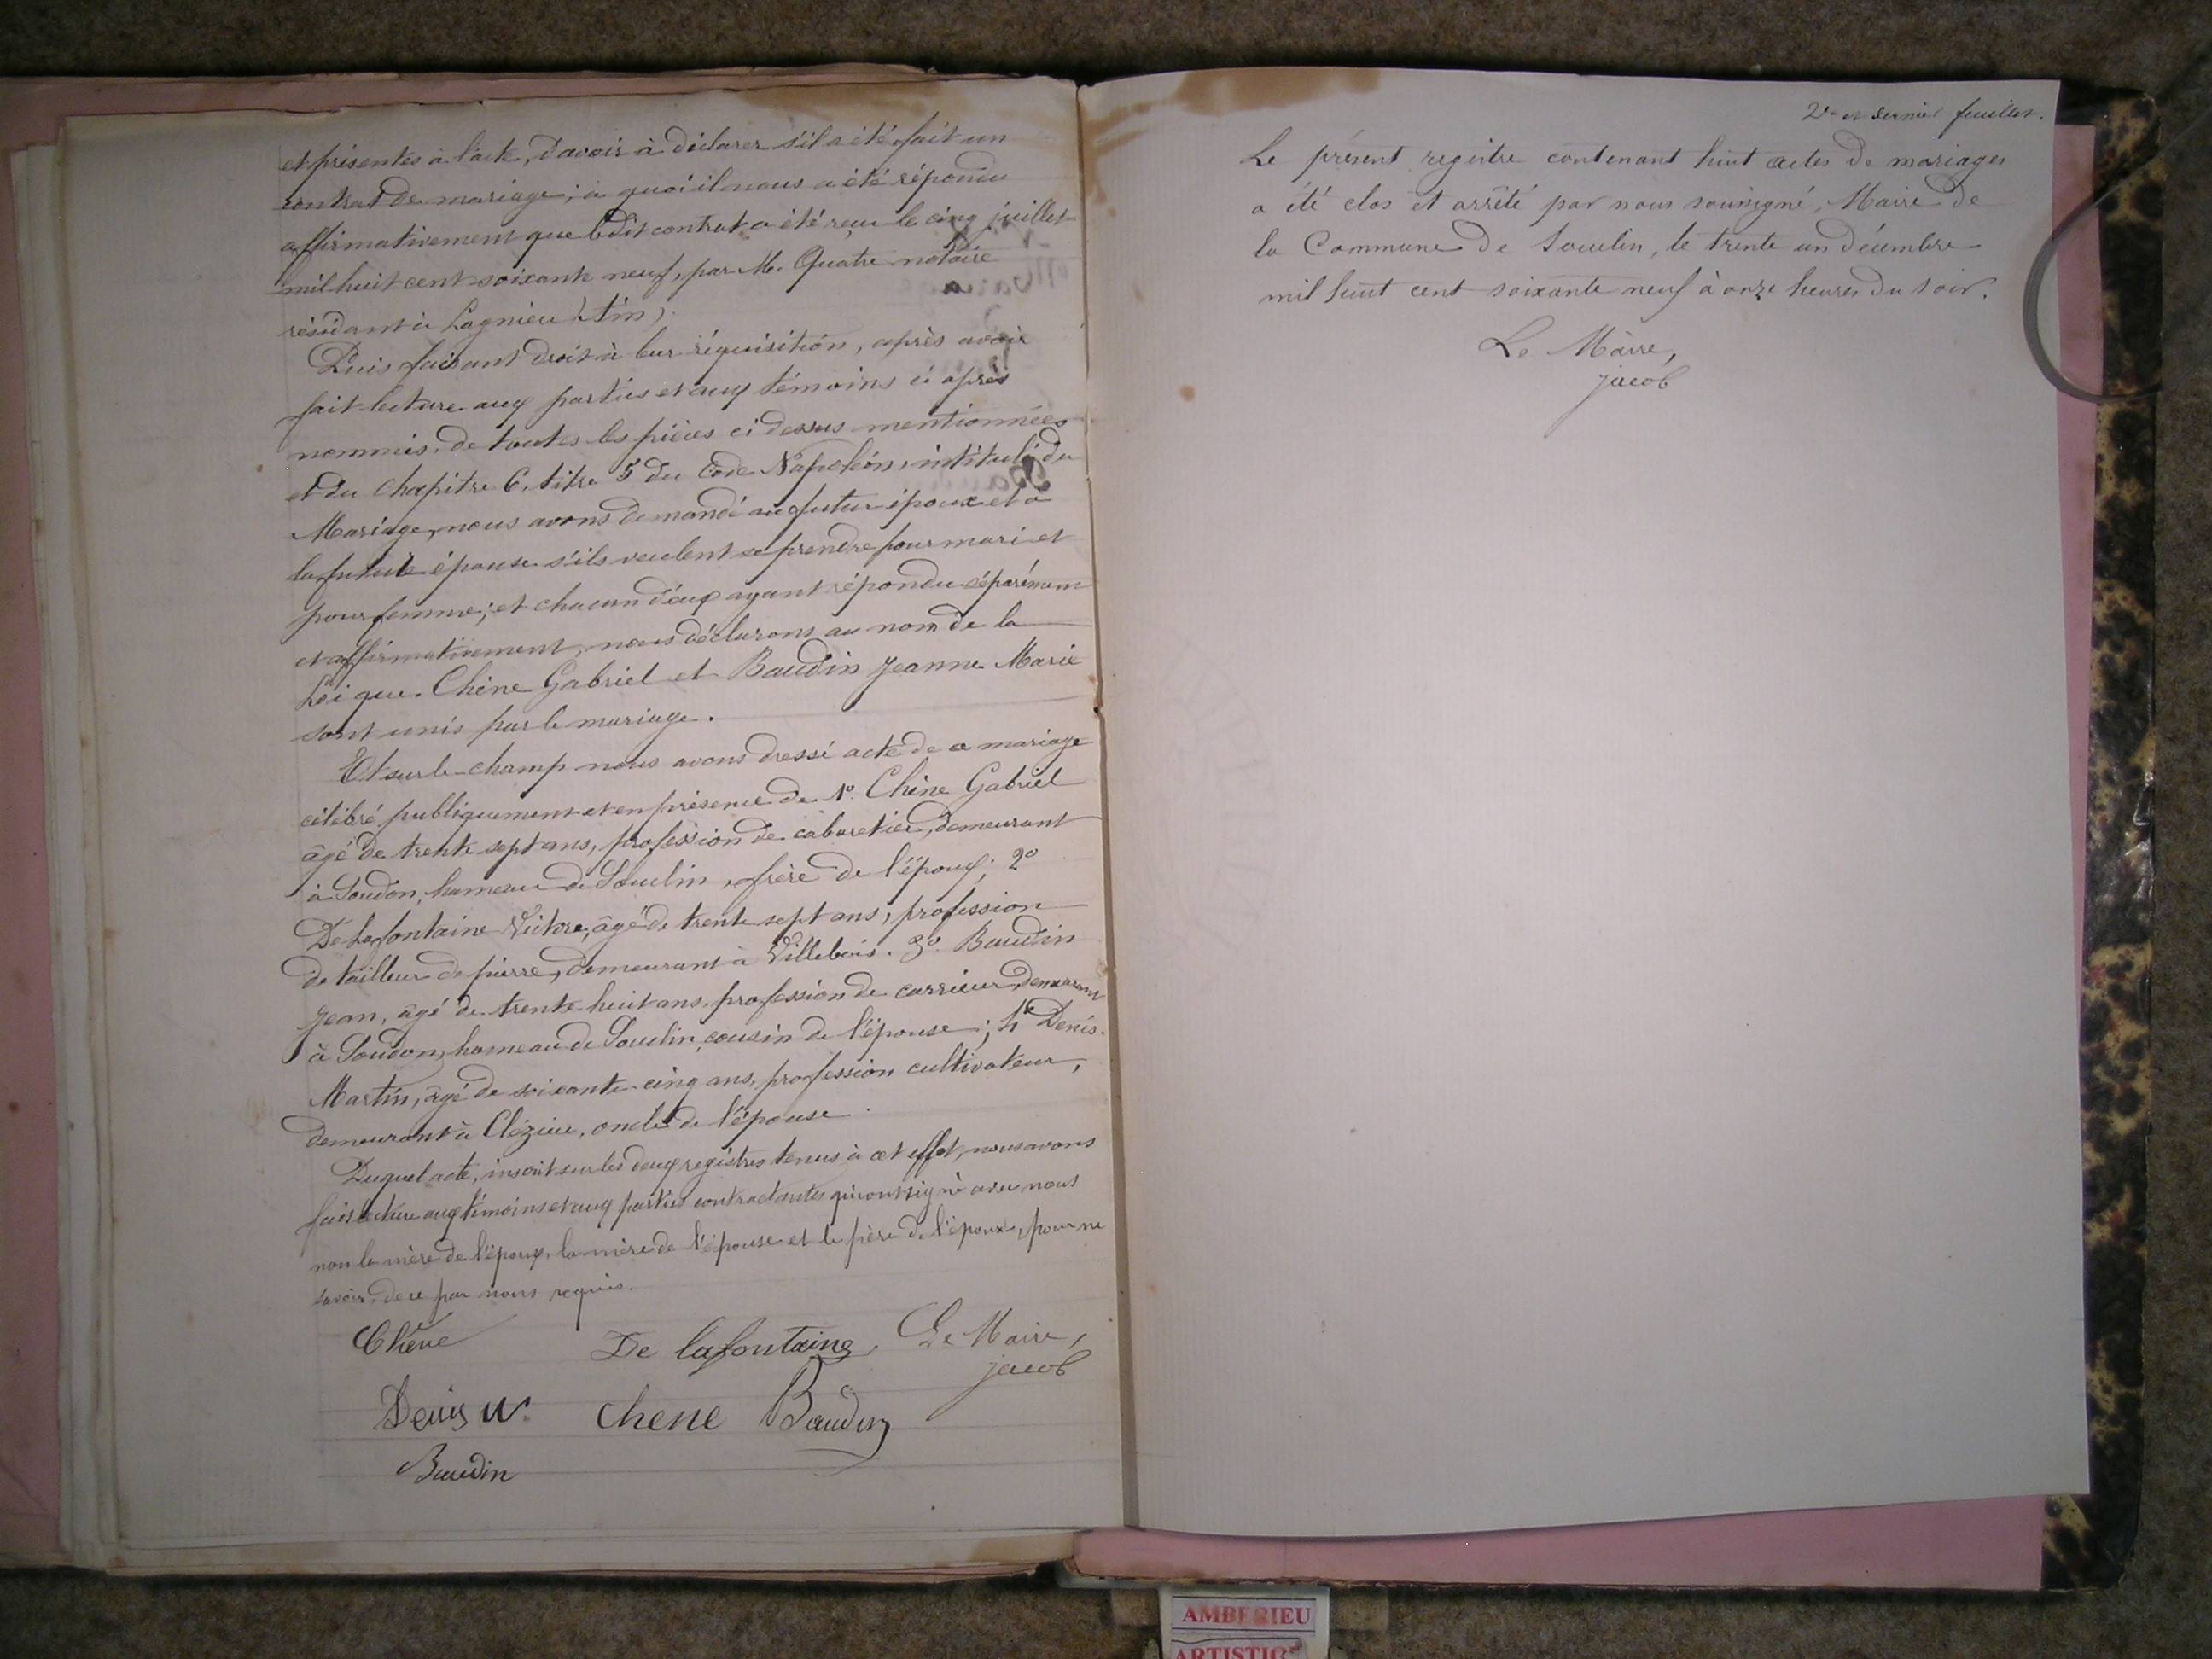 et présentes à l'acte, d'avoir à déclarer s'il a été fait un
contrat de mariage; à quoi il nous a été répondu
affirmativement que ledit contrat a été reçu le cinq juillet
mil huit cent soixante neuf, par M. Quatre notaire
résidant à Lagnieu (Ain).
Puis faisant droit à leur réquisition, après avoir
fait lecture aux parties et aux témoins ci après
nommés, de toutes les pièces ci dessus mentionnées
et du chapitre 6, titre 5 du Code Napoléon, intitulé du
Mariage, nous avons demandé au futur époux et à
la future épouse s'ils veulent se prendre pour mari et
pour femme; et chacun d'eux ayant répondu séparément
et affirmativement, nous déclarons au nom de la
Loi que Chêne Gabriel et Baudin Jeanne Marie
sont unis par le mariage.
Et sur le champ nous avons dressé acte de ce mariage
célébré publiquement et en présence de 1º Chêne Gabriel
âgé de trente sept ans, profession de cabaretier, demeurant
à Soudon, hameau de Souclin, frère de l'époux; 2º
De Lafontaine Victore, âgé de trente sept ans, profession
de tailleur de pierre, demeurant à Villebois. 3º Baudin
Jean, âgé de trente huit ans, profession de carrieur, demeurant
à Soudon, hameau de Souclin, cousin de l'épouse; 4º Denis
Martin, âgé de soixante cinq ans, profession cultivateur,
demeurant à Clézieu, oncle de l'épouse.
Duquel acte, inscrit sur les deux registres tenus à cet effet, nous avons
fait lecture aux témoins et aux parties contractantes qui ont signé avec nous
non la mère de l'époux, la mère de l'épouse et le père de l'époux, pour ne
savoir, de ce par nous requis.
Chêne De lafontaine. Le Maire,
jacob
Denis M. chene Baudin
Baudin
2e et dernier feuillet.
Le présent registre contenant huit actes de mariages
a été clos et arrêté par nous soussigné, Maire de
la Commune de Souclin, le trente un décembre
mil huit cent soixante neuf à onze heures du soir.
Le Maire,
jacob
AMBERIEU